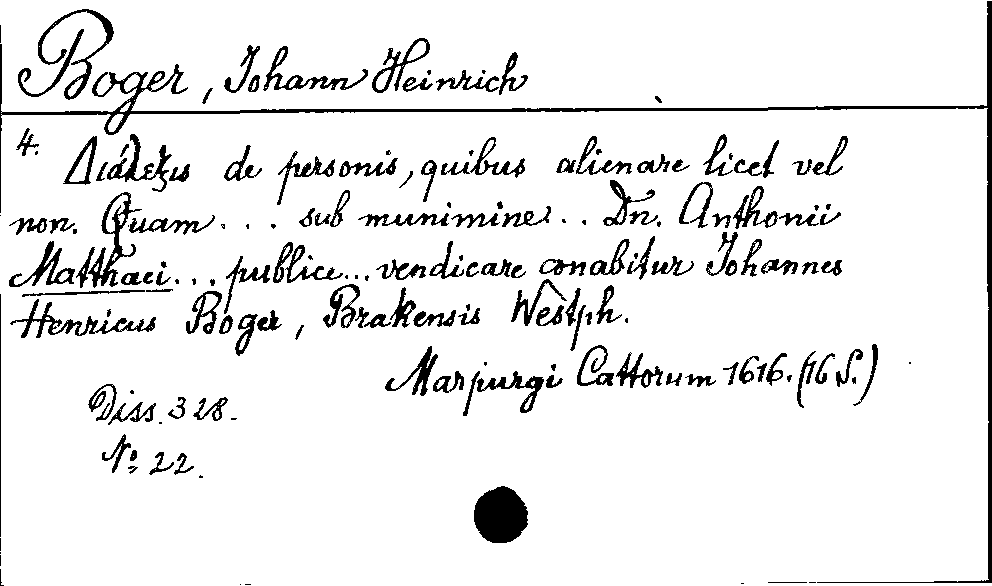 Boger, Johann Heinrich
4. Διάλεξις de personis, quibus alienare licet vel
non. Quam ... sub munimine ... Dn. Anthonii
Matthaei ... publice ... vendicare conabitur Johannes
Henricus Boger, Brakensis Westph.
Marpurgi Cattorum 1616. (16 S.)
Diss. 328.
No 22.